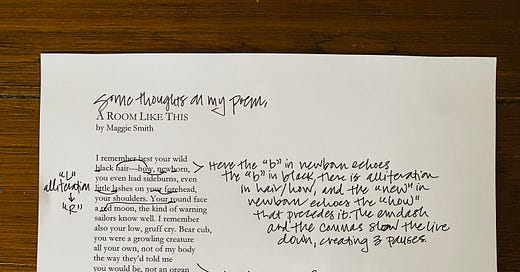 Some thoughts on my poem,
A ROOM LIKE THIS
by Maggie Smith
I remember best your wild
black hair—how, newborn,
you even had sideburns, even
little lashes on your forehead,
your shoulders. Your round face
a red moon, the kind of warning
sailors know well. I remember
also your low, gruff cry. Bear cub,
you were a growling creature
all your own, not of my body
the way they'd told me
you would be, not an organ
"L"
alliteration
"R"
Here the "b" in newborn echoes
the "b" in black, there is alliteration
in hair/how, and the "new" in
newborn echoes the "how"
that precedes it. The em dash
and the commas slow the line
down, creating 3 pauses.